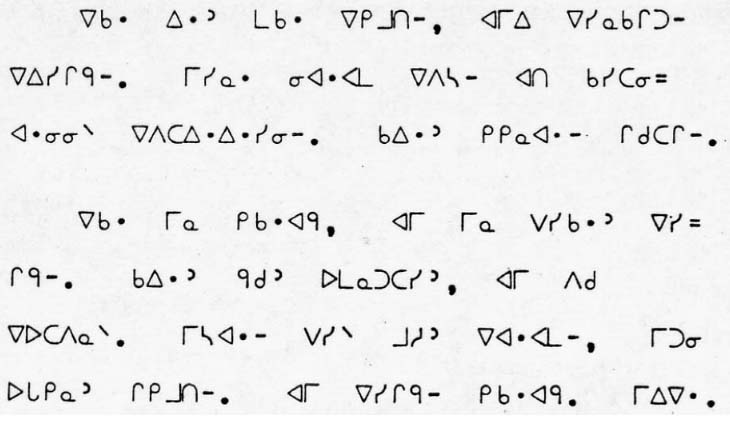 ᐁᑲᐧ ᐃᐧᐣ ᒪᑲᐧ ᐁᑭᒧᑎᐨ, ᐊᒥᐃ ᐁᓯᓇᑲᒋᑐᐨ
ᐁᐃᓯᒋᑫᐨ. ᒥᓯᓇᐧ ᓂᐊᐧᐊᒪ ᐁᐱᓴᐨ ᐊᑎ ᑲᓯᑕᓂ=
ᐊᐧᓂᓂᐠ ᐁᐱᑕᐃᐧᐃᐧᓯᓂᐨ. ᑲᐃᐧᐣ ᑭᑭᓇᐊᐧᐨ ᒋᑯᑕᒋᐨ.
ᐁᑲᐧ ᒥᓇ ᑭᑲᐧᐊᑫ, ᐊᒥ ᒥᓇ ᐯᓯᑲᐧᐣ ᐁᓯ=
ᒋᑫᐨ. ᑲᐃᐧᐣ ᑫᑯᐣ ᐅᒪᓇᑐᑕᓯᐣ, ᐊᒥ ᐱᑯ
ᐁᐅᑕᐱᓇᐠ. ᒥᓴᐊᐧᐨ ᐯᓯᐠ ᒧᓱᐣ ᐁᐊᐧᐊᒪᐨ, ᒥᑐᓂ
ᐅᒐᑭᓇᐣ ᒋᑭᒧᑎᐨ. ᐊᒥ ᐁᓯᒋᑫᐨ ᑭᑲᐧᐊᑫ. ᒥᐃᐁᐧ.